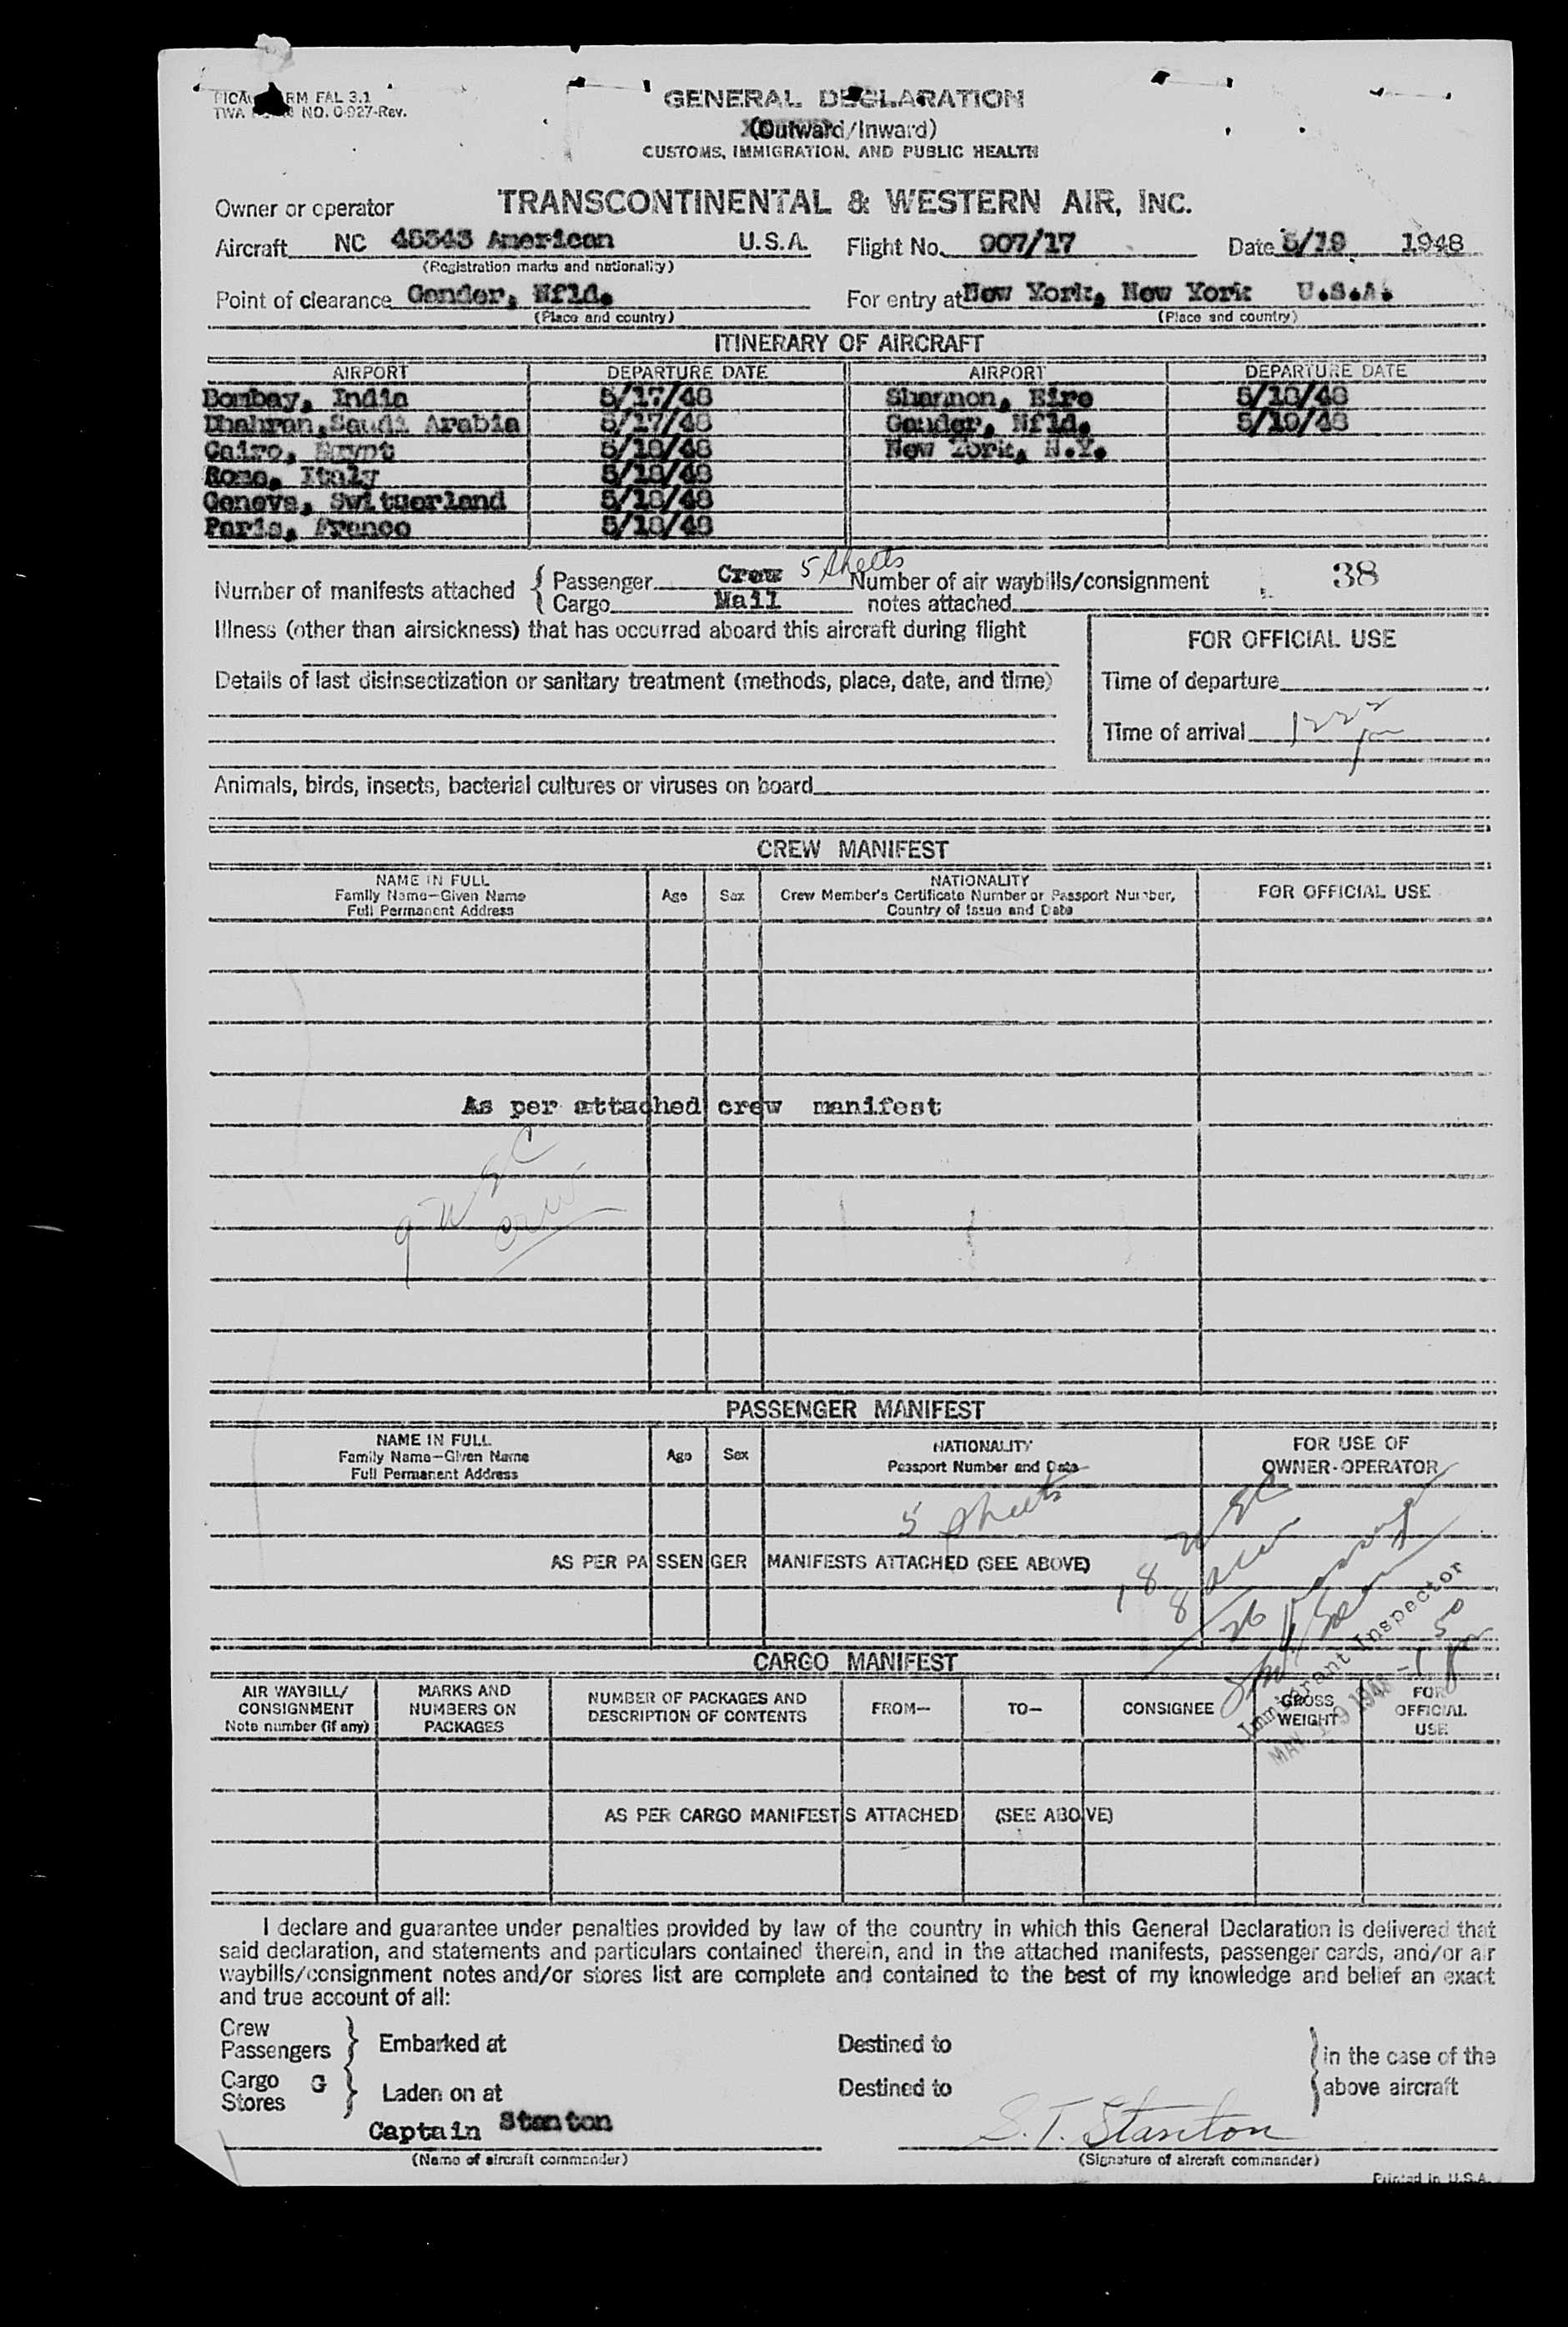 FORM FAL 3.1
TWA NO. O-927-Rev.
GENERAL DECLARATION
(Outward/Inward)
CUSTOMS, IMMIGRATION, AND PUBLIC HEALTH
Owner or operator TRANSCONTINENTAL & WESTERN AIR, INC.
Aircraft NC 45343 American U.S.A. Flight No. 907/17 Date 5/19 1948
(Registration marks and nationality)
Point of clearance Gander, Nfld. For entry at New York, New York U.S.A.
(Place and country) (Place and country)
ITINERARY OF AIRCRAFT
AIRPORT DEPARTURE DATE AIRPORT DEPARTURE DATE
Bombay, India 5/17/48 Shannon, Eire 5/18/48
Dhahran, Saudi Arabia 5/17/48 Gander, Nfld. 5/19/48
Cairo, Egypt 5/18/48 New York, N.Y.
Rome, Italy 5/18/48
Geneva, Switzerland 5/18/48
Paris, France 5/18/48
Number of manifests attached { Passenger Crew 5 sheets Number of air waybills/consignment 38
Cargo Mail notes attached
Illness (other than airsickness) that has occurred aboard this aircraft during flight
FOR OFFICIAL USE
Details of last disinsectization or sanitary treatment (methods, place, date, and time)
Time of departure
Time of arrival 1222 pm
Animals, birds, insects, bacterial cultures or viruses on board
CREW MANIFEST
NAME IN FULL
Family Name—Given Name
Full Permanent Address
Age Sex
NATIONALITY
Crew Member's Certificate Number or Passport Number,
Country of Issue and Date
FOR OFFICIAL USE
As per attached crew manifest
9 U S C
crew
PASSENGER MANIFEST
NAME IN FULL
Family Name—Given Name
Full Permanent Address
Age Sex
NATIONALITY
Passport Number and Date
FOR USE OF
OWNER-OPERATOR
5 sheets
AS PER PASSENGER MANIFESTS ATTACHED (SEE ABOVE)
18 U S C
8
26
Immigrant Inspector
MAY 19 1948
CARGO MANIFEST
AIR WAYBILL/
CONSIGNMENT
Note number (if any)
MARKS AND
NUMBERS ON
PACKAGES
NUMBER OF PACKAGES AND
DESCRIPTION OF CONTENTS
FROM— TO— CONSIGNEE
GROSS
WEIGHT
FOR
OFFICIAL
USE
AS PER CARGO MANIFESTS ATTACHED (SEE ABOVE)
I declare and guarantee under penalties provided by law of the country in which this General Declaration is delivered that
said declaration, and statements and particulars contained therein, and in the attached manifests, passenger cards, and/or air
waybills/consignment notes and/or stores list are complete and contained to the best of my knowledge and belief an exact
and true account of all:
Crew
Passengers } Embarked at Destined to } in the case of the
Cargo G
Stores } Laden on at Destined to above aircraft
Captain Stanton S. T. Stanton
(Name of aircraft commander) (Signature of aircraft commander)
Printed in U.S.A.